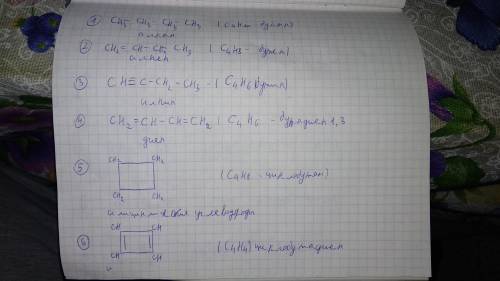 ① CH₃ - CH₂ CH₂ CH₃ (C₄H₁₀ бутан)
алкан
② CH₂ = CH - CH₂ CH₃ (C₄H₈ - бутен)
алкен
③ CH ≡ C - CH₂ - CH₃ - (C₄H₆ бутин)
алкин
④ CH₂ = CH - CH = CH₂ | C₄H₆ - бутадиен 1,3
диен
⑤ CH₂ CH₂
(C₄H₈ - циклобутан)
CH₂ CH₂
углеводороды
⑥ CH CH
(C₄H₄) циклобутадиен
CH CH